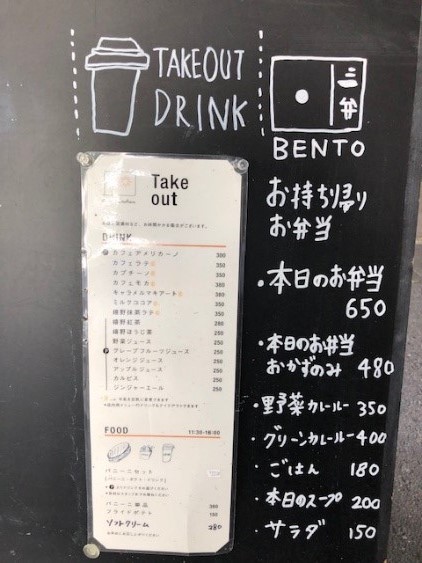 TAKEOUT
DRINK
弁
BENTO
お持ち帰り
お弁当
・本日のお弁当
650
・本日のお弁当
おかずのみ 480
・野菜カレールー 350
・グリーンカレールー 400
・ごはん 180
・本日のスープ 200
・サラダ 150
Take
out
DRINK
カフェアメリカーノ 300
カフェラテ 350
カプチーノ 350
カフェモカ 380
キャラメルマキアート 380
ミルクココア 350
嬉野抹茶ラテ 350
嬉野紅茶 280
嬉野ほうじ茶 280
野菜ジュース 250
グレープフルーツジュース 250
オレンジジュース 250
アップルジュース 250
カルピス 250
ジンジャーエール 250
FOOD 11:30-16:00
パニーニセット
パニーニ単品
フライドポテト
ソフトクリーム 280